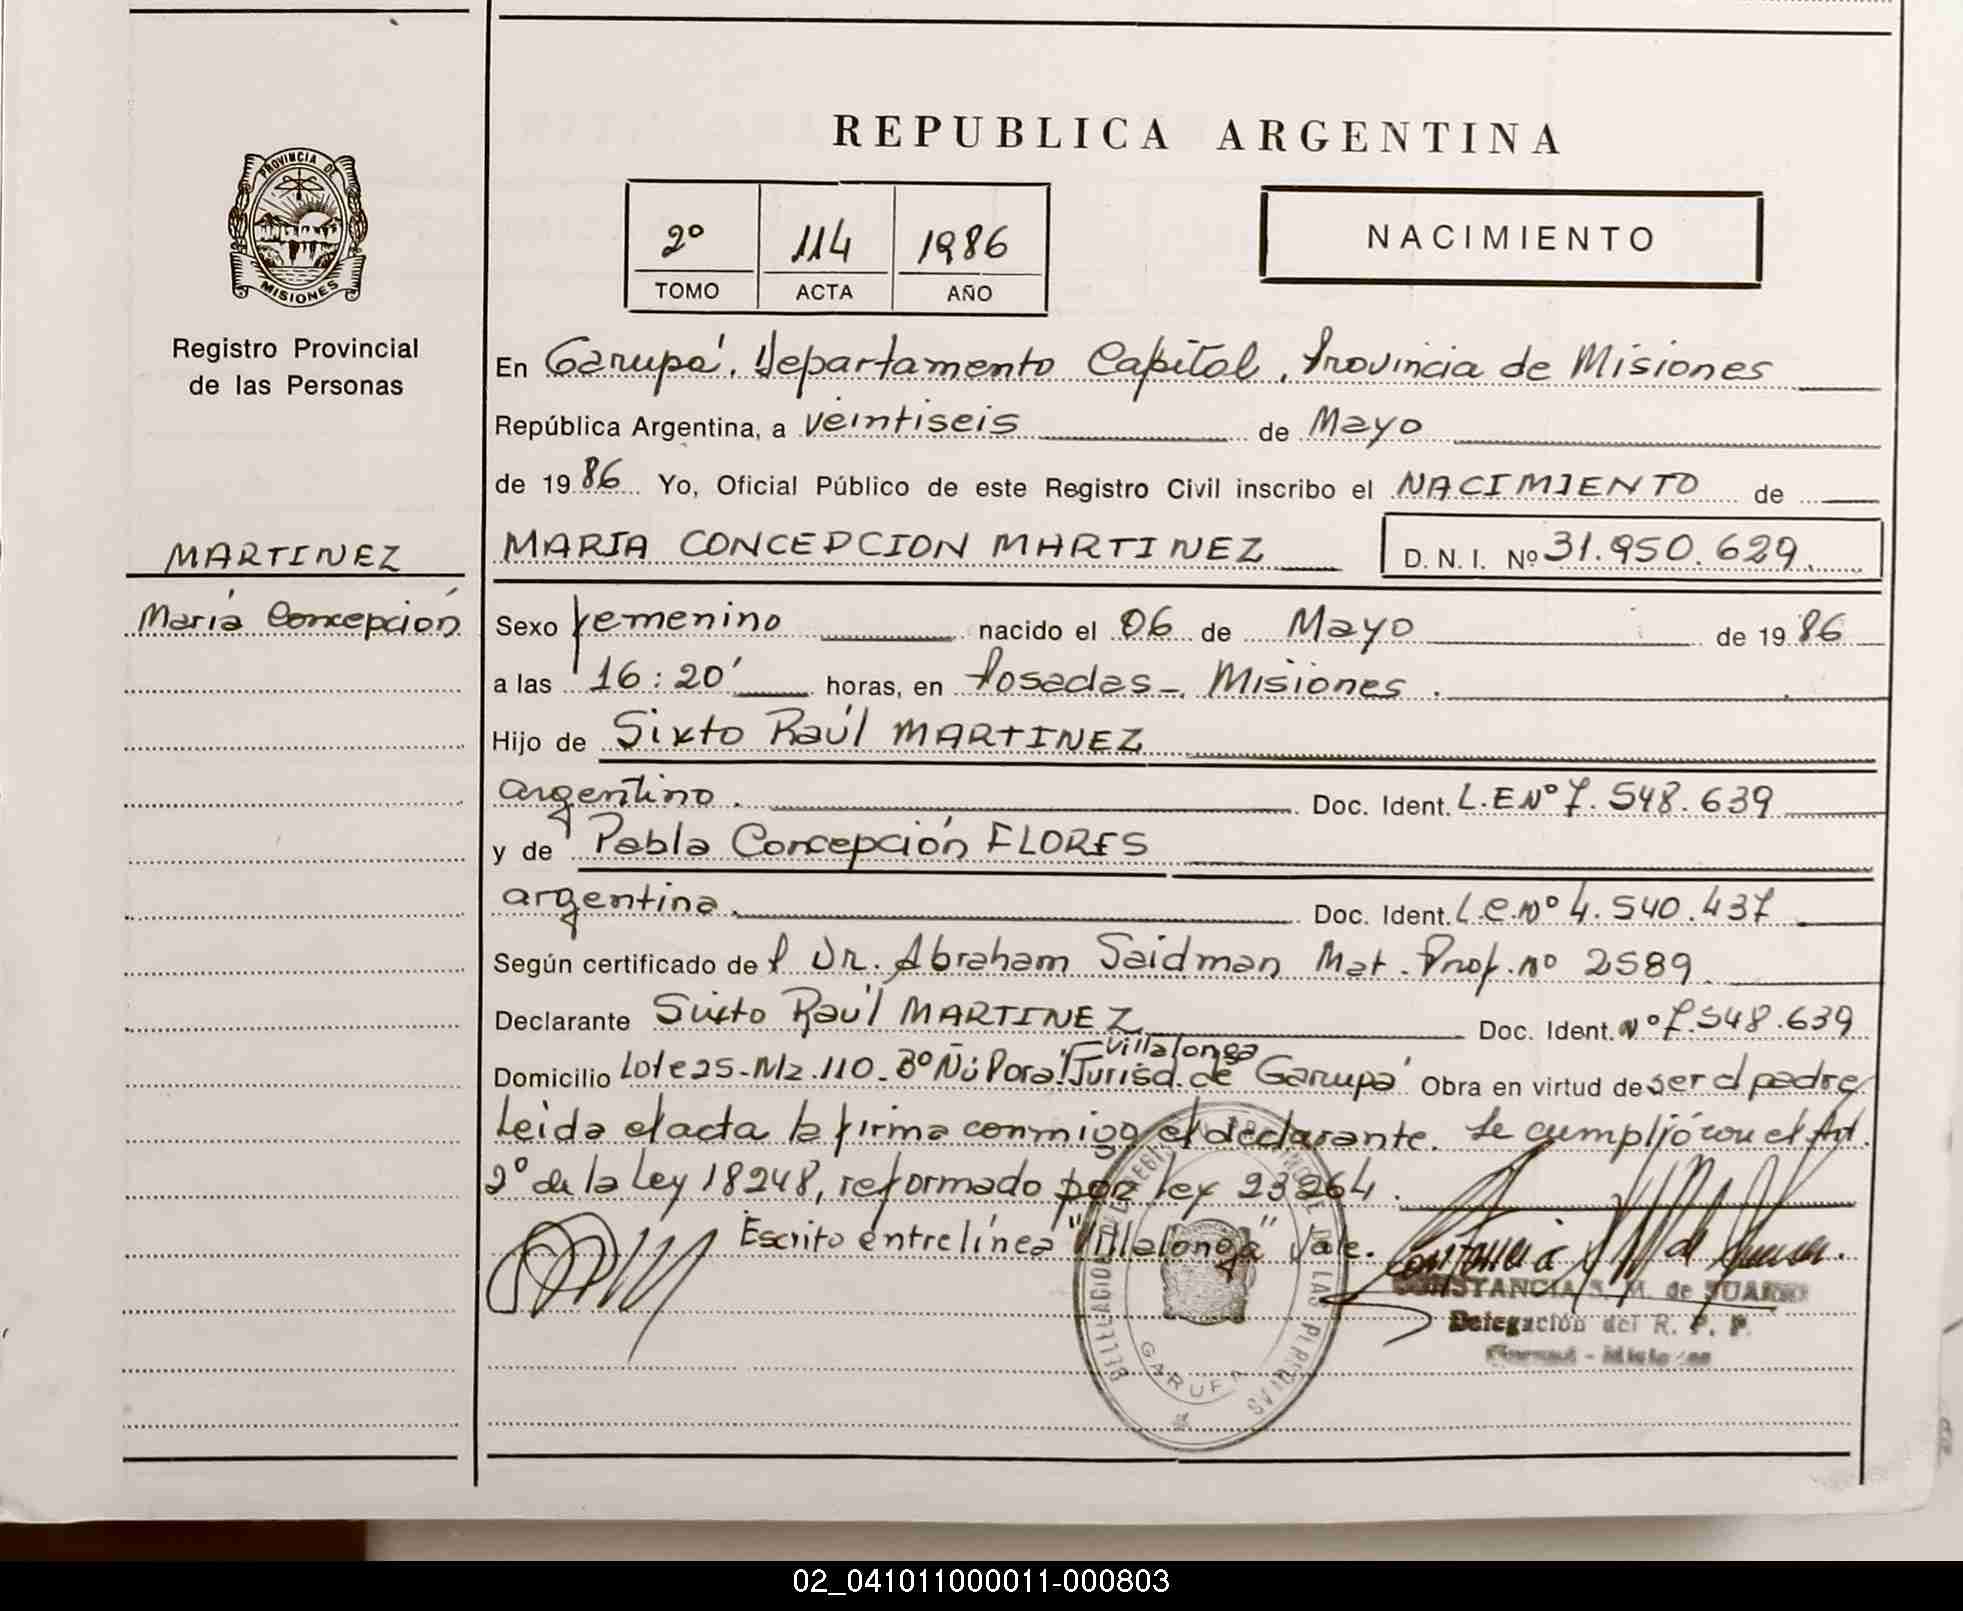 REPUBLICA ARGENTINA
PROVINCIA DE
MISIONES
Registro Provincial
de las Personas
2º 114 1986
TOMO ACTA AÑO
NACIMIENTO
En Garupá, Departamento Capital, Provincia de Misiones
República Argentina, a veintiseis de Mayo
de 1986 Yo, Oficial Público de este Registro Civil inscribo el NACIMIENTO de
MARTINEZ
María Concepción
MARIA CONCEPCION MARTINEZ D. N. I. Nº 31.950.629.
Sexo femenino nacido el 06 de Mayo de 1986
a las 16:20' horas, en Posadas - Misiones.
Hijo de Sixto Raúl MARTINEZ
argentino. Doc. Ident. L.E Nº 7.548.639
y de Pabla Concepción FLORES
argentina. Doc. Ident. L.C. Nº 4.540.437
Según certificado del Dr. Abraham Saidman Mat. Prof. nº 2589.
Declarante Sixto Raúl MARTINEZ Doc. Ident. Nº 7.548.639
Villalonga
Domicilio Lote 25 - Mz. 110 - Bº Ñú Porá Jurisd. de Garupá Obra en virtud de ser el padre
Leida el acta la firma conmigo el declarante. Se cumplió con el Art.
2º de la Ley 18248, reformado por ley 23264.
Escrito entrelínea "Villalonga" Vale.
DELEGACION REGISTRO PROVINCIAL DE LAS PERSONAS
GARUPA
CONSTANCIA S. M. de SUAREZ
Delegación del R. P. P.
Garupá - Misiones
02_041011000011-000803